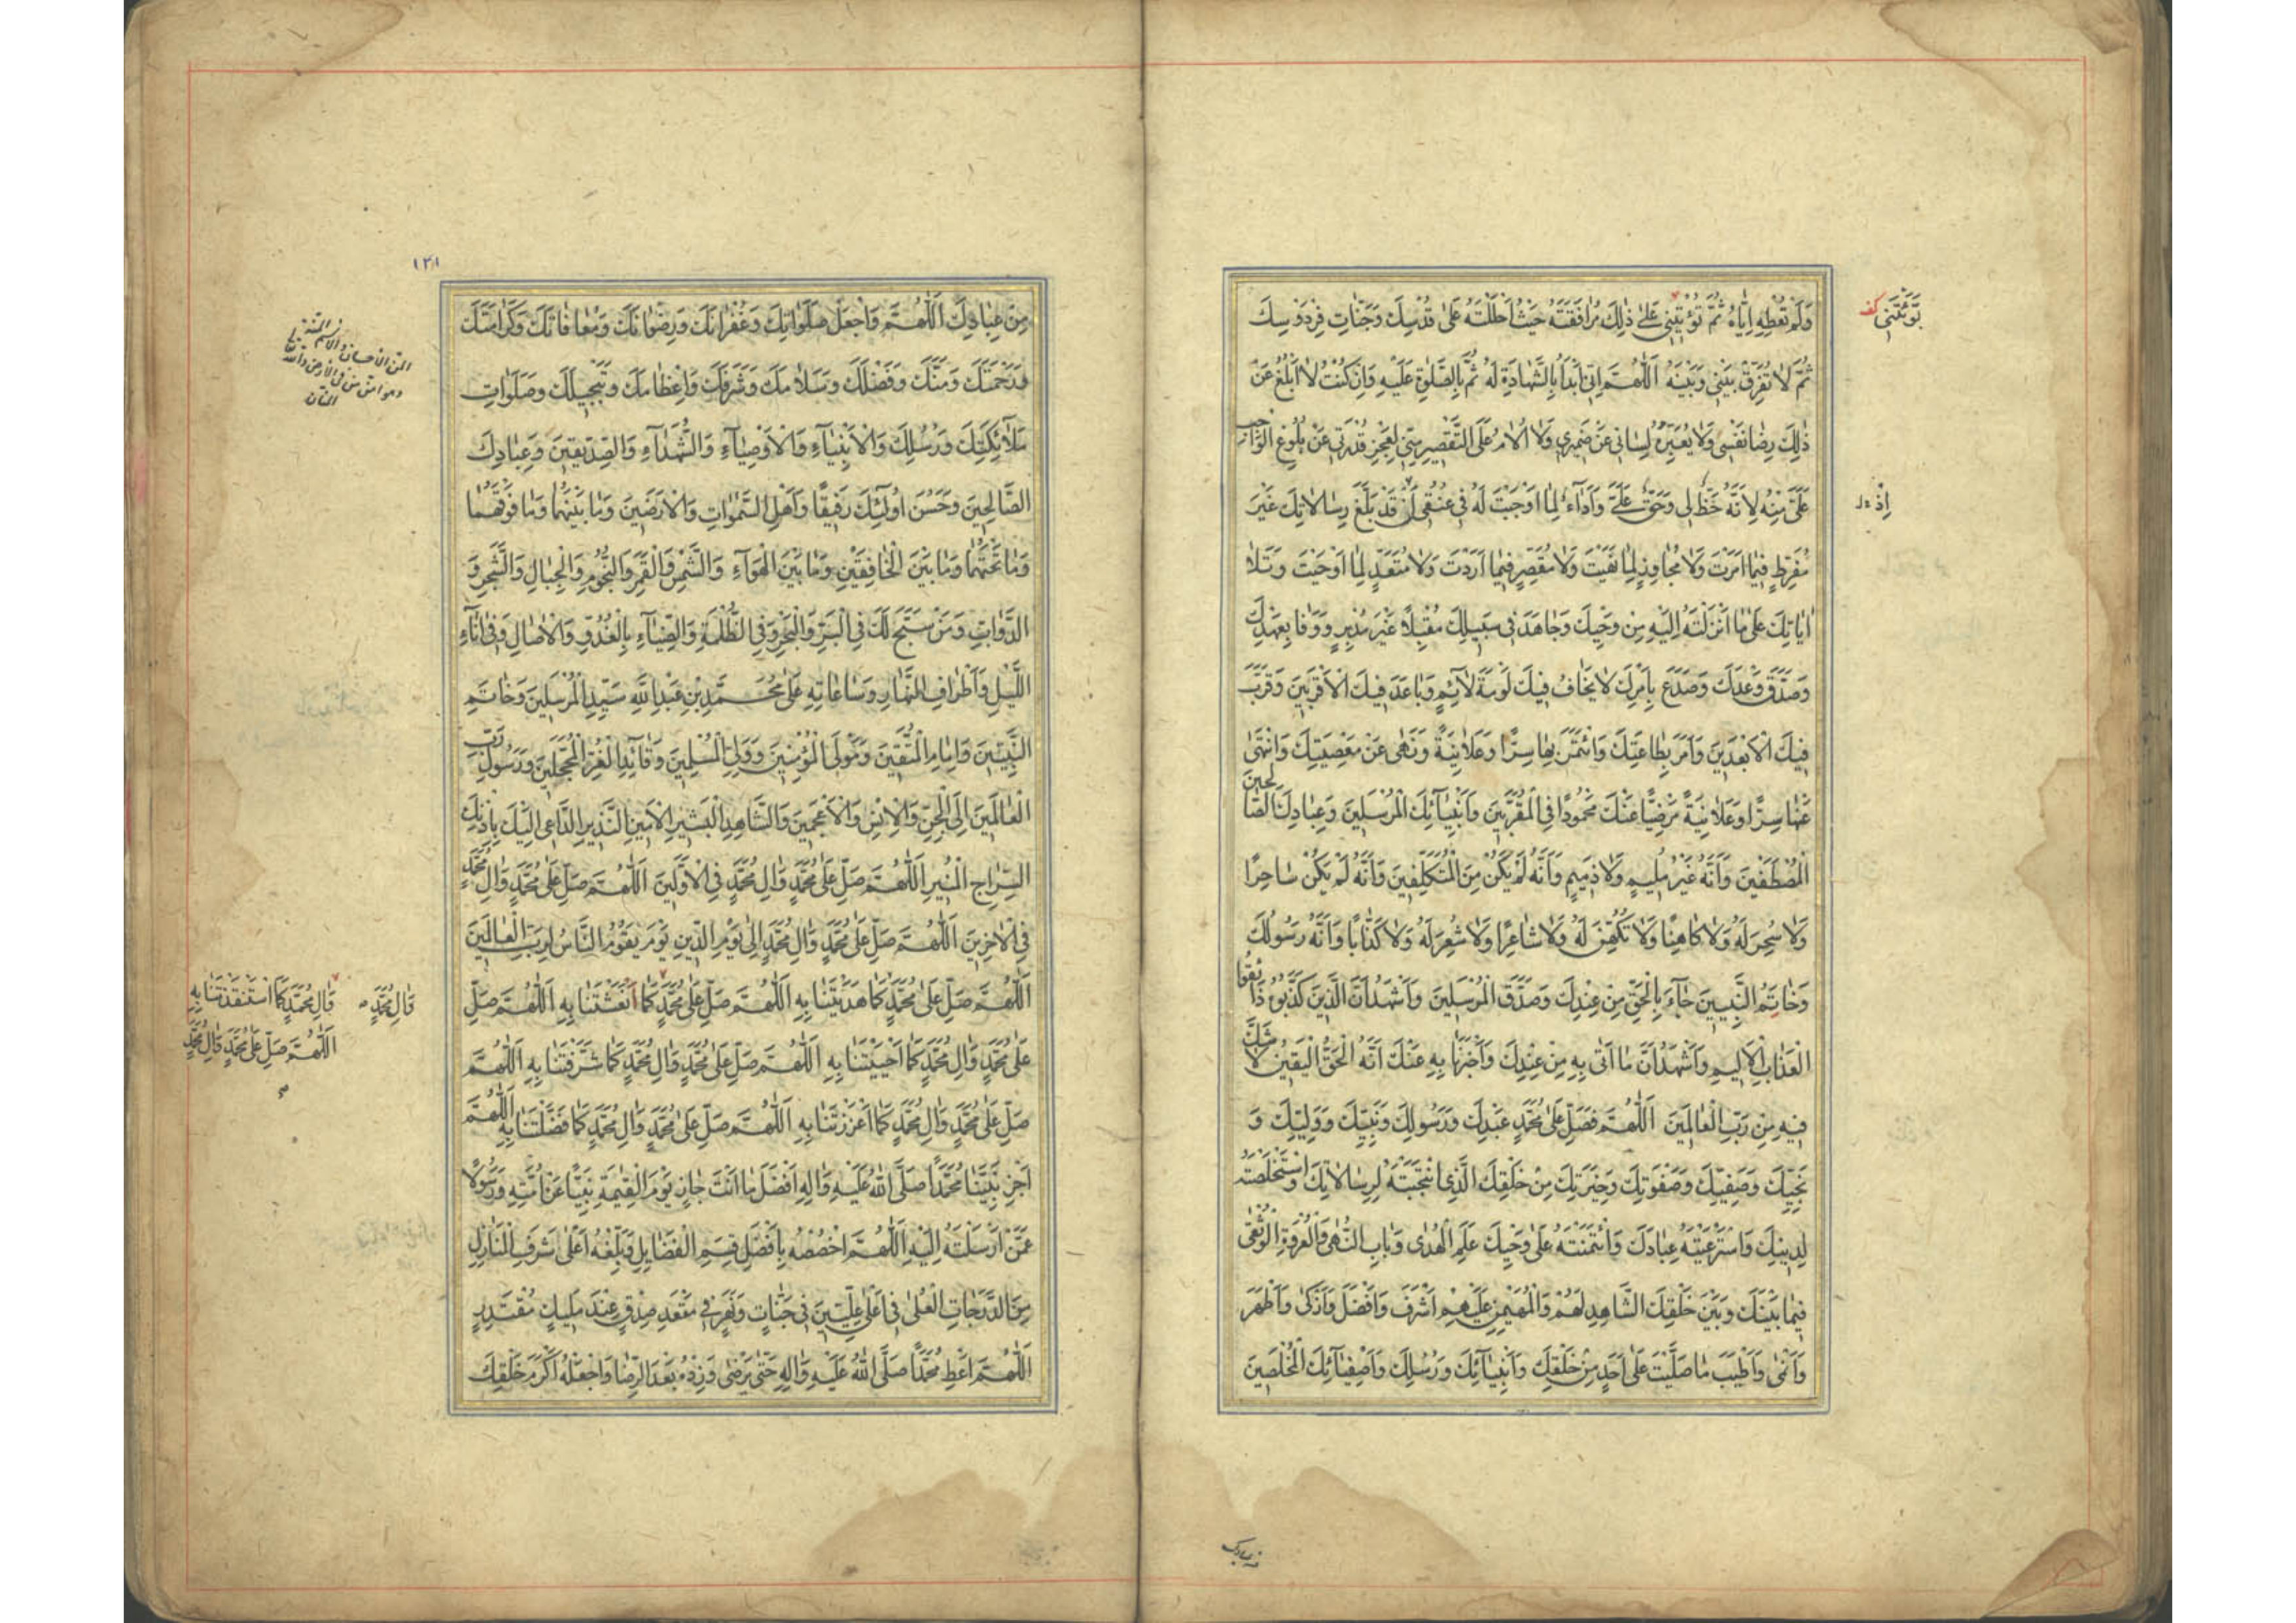 وَلَمْ تُعْطِهِ إِيَّاهُ ثُمَّ تُؤْتِيَنِي عَلَىٰ ذٰلِكَ مُرَافَقَتَهُ حَيْثُ أَحْلَلْتَهُ عَلَىٰ قُدْسِكَ وَجَنَّاتِ فِرْدَوْسِكَ
ثُمَّ لَا تُفَرِّقْ بَيْنِي وَبَيْنَهُ اَللّٰهُمَّ اِنِّي أَبْدَأُ بِالشَّهَادَةِ لَهُ ثُمَّ بِالصَّلٰوةِ عَلَيْهِ وَاِنْ كُنْتُ لَا أَبْلُغُ عَنْ
ذٰلِكَ رِضَا نَفْسِي وَلَا يُعَبِّرُهُ لِسَانِي عَنْ ضَمِيرِي وَلَا أُلَامُ عَلَى التَّقْصِيرِ مِنِّي لِعَجْزِ قُدْرَتِي عَنْ بُلُوغِ الْوَاجِبِ
عَلَيَّ مِنْهُ لِأَنَّهُ حَظٌّ لِي وَحَقٌّ عَلَيَّ وَأَدَاءٌ لِمَا أَوْجَبْتَ لَهُ فِي عُنُقِي أَنْ قَدْ بَلَّغَ رِسَالَاتِكَ غَيْرَ
مُفَرِّطٍ فِيمَا أَمَرْتَ وَلَا مُجَاوِزٍ لِمَا نَهَيْتَ وَلَا مُقَصِّرٍ فِيمَا أَرَدْتَ وَلَا مُتَعَدٍّ لِمَا أَوْحَيْتَ وَتَلَا
اٰيَاتِكَ عَلَىٰ مَا أَنْزَلْتَهُ إِلَيْهِ مِنْ وَحْيِكَ وَجَاهَدَ فِي سَبِيلِكَ مُقْبِلًا غَيْرَ مُدْبِرٍ وَوَفَا بِعَهْدِكَ
وَصَدَّقَ وَعْدَكَ وَصَدَعَ بِأَمْرِكَ لَا يَخَافُ فِيكَ لَوْمَةَ لَائِمٍ وَبَاعَدَ فِيكَ الْأَقْرَبِينَ وَقَرَّبَ
فِيكَ الْأَبْعَدِينَ وَأَمَرَ بِطَاعَتِكَ وَائْتَمَرَ بِهَا سِرًّا وَعَلَانِيَةً وَنَهَىٰ عَنْ مَعْصِيَتِكَ وَانْتَهَىٰ
عَنْهَا سِرًّا وَعَلَانِيَةً مَرْضِيًّا عِنْدَكَ مَحْمُودًا فِي الْمُقَرَّبِينَ وَأَنْبِيَائِكَ الْمُرْسَلِينَ وَعِبَادِكَ الصَّالِحِينَ
الْمُصْطَفَيْنَ وَأَنَّهُ غَيْرُ مُلِيمٍ وَلَا ذَمِيمٍ وَأَنَّهُ لَمْ يَكُنْ مِنَ الْمُتَكَلِّفِينَ وَأَنَّهُ لَمْ يَكُنْ سَاحِرًا
وَلَا سُحِرَ لَهُ وَلَا كَاهِنًا وَلَا تُكُهِّنَ لَهُ وَلَا شَاعِرًا وَلَا شُعِرَ لَهُ وَلَا كَذَّابًا وَأَنَّهُ رَسُولُكَ
وَخَاتِمُ النَّبِيِّينَ جَاءَ بِالْحَقِّ مِنْ عِنْدِكَ وَصَدَّقَ الْمُرْسَلِينَ وَأَشْهَدُ أَنَّ الَّذِينَ كَذَّبُوهُ ذَائِقُوا
الْعَذَابِ الْأَلِيمِ وَأَشْهَدُ أَنَّ مَا أَتَىٰ بِهِ مِنْ عِنْدِكَ وَأَخْبَرَنَا بِهِ عَنْكَ أَنَّهُ الْحَقُّ الْيَقِينُ لَا شَكَّ
فِيهِ مِنْ رَبِّ الْعَالَمِينَ اَللّٰهُمَّ فَصَلِّ عَلَىٰ مُحَمَّدٍ عَبْدِكَ وَرَسُولِكَ وَنَبِيِّكَ وَوَلِيِّكَ وَ
نَجِيِّكَ وَصَفِيِّكَ وَصَفْوَتِكَ وَخِيَرَتِكَ مِنْ خَلْقِكَ الَّذِي انْتَجَبْتَهُ لِرِسَالَاتِكَ وَاسْتَخْلَصْتَهُ
لِدِينِكَ وَاسْتَرْعَيْتَهُ عِبَادَكَ وَائْتَمَنْتَهُ عَلَىٰ وَحْيِكَ عَلَمِ الْهُدَىٰ وَبَابِ النُّهَىٰ وَالْعُرْوَةِ الْوُثْقَىٰ
فِيمَا بَيْنَكَ وَبَيْنَ خَلْقِكَ الشَّاهِدِ لَهُمْ وَالْمُهَيْمِنِ عَلَيْهِمْ أَشْرَفَ وَأَفْضَلَ وَأَزْكَىٰ وَأَطْهَرَ
وَأَنْمَىٰ وَأَطْيَبَ مَا صَلَّيْتَ عَلَىٰ أَحَدٍ مِنْ خَلْقِكَ وَأَنْبِيَائِكَ وَرُسُلِكَ وَأَصْفِيَائِكَ الْمُخْلَصِينَ
إِذْ
من عبادك
١٣١
مِنْ عِبَادِكَ اَللّٰهُمَّ وَاجْعَلْ صَلَوَاتِكَ وَغُفْرَانَكَ وَرِضْوَانَكَ وَمُعَافَاتَكَ وَكَرَامَتَكَ
وَرَحْمَتَكَ وَمَنَّكَ وَفَضْلَكَ وَسَلَامَكَ وَشَرَفَكَ وَإِعْظَامَكَ وَتَبْجِيلَكَ وَصَلَوَاتِ
مَلَائِكَتِكَ وَرُسُلِكَ وَالْأَنْبِيَاءِ وَالْأَوْصِيَاءِ وَالشُّهَدَاءِ وَالصِّدِّيقِينَ وَعِبَادِكَ
الصَّالِحِينَ وَحَسُنَ أُولٰئِكَ رَفِيقًا وَأَهْلِ السَّمٰوَاتِ وَالْأَرَضِينَ وَمَا بَيْنَهُمَا وَمَا فَوْقَهُمَا
وَمَا تَحْتَهُمَا وَمَا بَيْنَ الْخَافِقَيْنِ وَمَا بَيْنَ الْهَوَاءِ وَالشَّمْسِ وَالْقَمَرِ وَالنُّجُومِ وَالْجِبَالِ وَالشَّجَرِ وَ
الدَّوَابِّ وَمَنْ سَبَّحَ لَكَ فِي الْبَرِّ وَالْبَحْرِ وَفِي الظُّلْمَةِ وَالضِّيَاءِ بِالْغُدُوِّ وَالْاٰصَالِ وَفِي اٰنَاءِ
اللَّيْلِ وَأَطْرَافِ النَّهَارِ وَسَاعَاتِهِ عَلَىٰ مُحَمَّدِ بْنِ عَبْدِ اللّٰهِ سَيِّدِ الْمُرْسَلِينَ وَخَاتَمِ
النَّبِيِّينَ وَإِمَامِ الْمُتَّقِينَ وَمَوْلَى الْمُؤْمِنِينَ وَوَلِيِّ الْمُسْلِمِينَ وَقَائِدِ الْغُرِّ الْمُحَجَّلِينَ وَرَسُولِ رَبِّ
الْعَالَمِينَ إِلَى الْجِنِّ وَالْإِنْسِ وَالْأَعْجَمِينَ وَالشَّاهِدِ الْبَشِيرِ الْأَمِينِ النَّذِيرِ الدَّاعِي إِلَيْكَ بِإِذْنِكَ
السِّرَاجِ الْمُنِيرِ اَللّٰهُمَّ صَلِّ عَلَىٰ مُحَمَّدٍ وَاٰلِ مُحَمَّدٍ فِي الْأَوَّلِينَ اَللّٰهُمَّ صَلِّ عَلَىٰ مُحَمَّدٍ وَاٰلِ مُحَمَّدٍ
فِي الْاٰخِرِينَ اَللّٰهُمَّ صَلِّ عَلَىٰ مُحَمَّدٍ وَاٰلِ مُحَمَّدٍ إِلَىٰ يَوْمِ الدِّينِ يَوْمَ يَقُومُ النَّاسُ لِرَبِّ الْعَالَمِينَ
اَللّٰهُمَّ صَلِّ عَلَىٰ مُحَمَّدٍ كَمَا هَدَيْتَنَا بِهِ اَللّٰهُمَّ صَلِّ عَلَىٰ مُحَمَّدٍ كَمَا أَنْعَشْتَنَا بِهِ اَللّٰهُمَّ صَلِّ
عَلَىٰ مُحَمَّدٍ وَاٰلِ مُحَمَّدٍ كَمَا أَحْيَيْتَنَا بِهِ اَللّٰهُمَّ صَلِّ عَلَىٰ مُحَمَّدٍ وَاٰلِ مُحَمَّدٍ كَمَا شَرَّفْتَنَا بِهِ اَللّٰهُمَّ
صَلِّ عَلَىٰ مُحَمَّدٍ وَاٰلِ مُحَمَّدٍ كَمَا أَعْزَزْتَنَا بِهِ اَللّٰهُمَّ صَلِّ عَلَىٰ مُحَمَّدٍ وَاٰلِ مُحَمَّدٍ كَمَا فَضَّلْتَنَا بِهِ اَللّٰهُمَّ
اَجْزِ نَبِيَّنَا مُحَمَّدًا صَلَّى اللّٰهُ عَلَيْهِ وَاٰلِهِ أَفْضَلَ مَا أَنْتَ جَازٍ يَوْمَ الْقِيٰمَةِ نَبِيًّا عَنْ أُمَّتِهِ وَرَسُولًا
عَمَّنْ أَرْسَلْتَهُ إِلَيْهِ اَللّٰهُمَّ اخْصُصْهُ بِأَفْضَلِ قِسَمِ الْفَضَائِلِ وَبَلِّغْهُ أَعْلَىٰ شَرَفِ الْمَنَازِلِ
مِنَ الدَّرَجَاتِ الْعُلَىٰ فِي أَعْلَىٰ عِلِّيِّينَ فِي جَنَّاتٍ وَنَهَرٍ فِي مَقْعَدِ صِدْقٍ عِنْدَ مَلِيكٍ مُقْتَدِرٍ
اَللّٰهُمَّ اَعْطِ مُحَمَّدًا صَلَّى اللّٰهُ عَلَيْهِ وَاٰلِهِ حَتَّىٰ يَرْضَىٰ وَزِدْهُ بَعْدَ الرِّضَا وَاجْعَلْهُ أَكْرَمَ خَلْقِكَ
وَاٰلِ مُحَمَّدٍ
وَاٰلِ مُحَمَّدٍ كَمَا اسْتَنْقَذْتَنَا بِهِ
اَللّٰهُمَّ صَلِّ عَلَىٰ مُحَمَّدٍ وَاٰلِ مُحَمَّدٍ